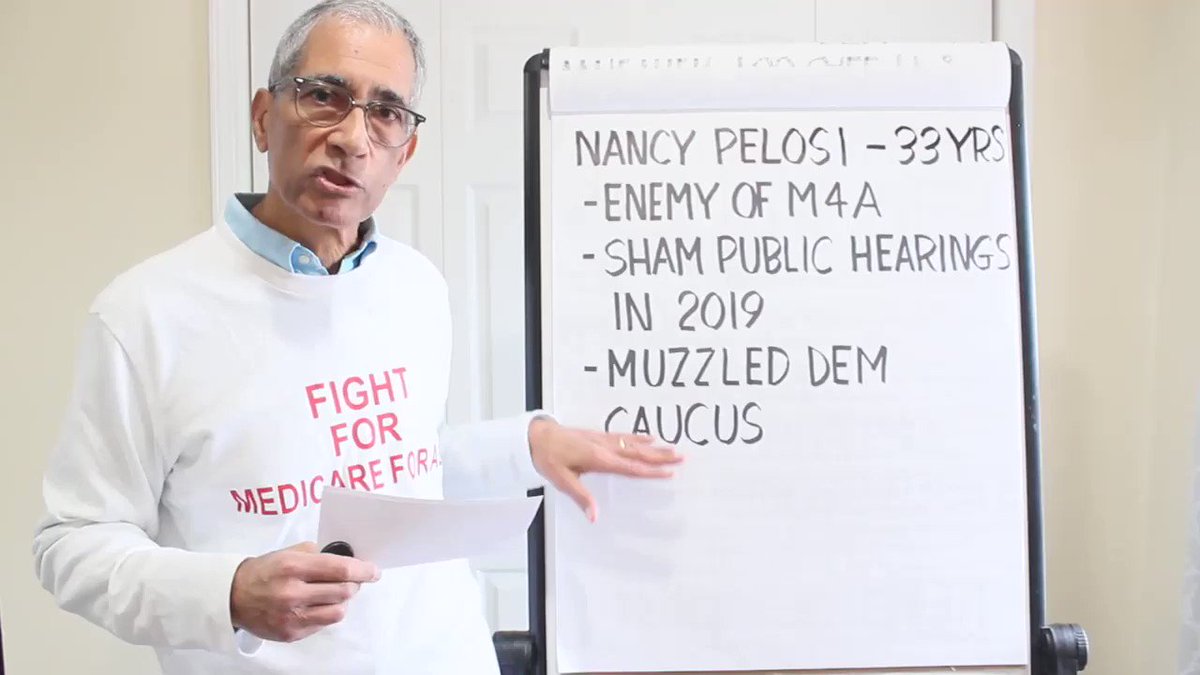 NANCY PELOSI - 33 YRS
- ENEMY OF M4A
- SHAM PUBLIC HEARINGS
IN 2019
- MUZZLED DEM
CAUCUS
FIGHT
FOR
MEDICARE FOR